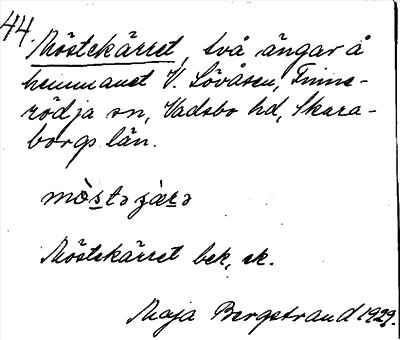 44.
Möstekärret, två ängar å
hemmanet V. Lövåsen, Finne-
rödja sn, Vadsbo hd, Skara-
borgs län.
mòstə
Möstekärret bek, sk.
Maja Bergstrand 1929.